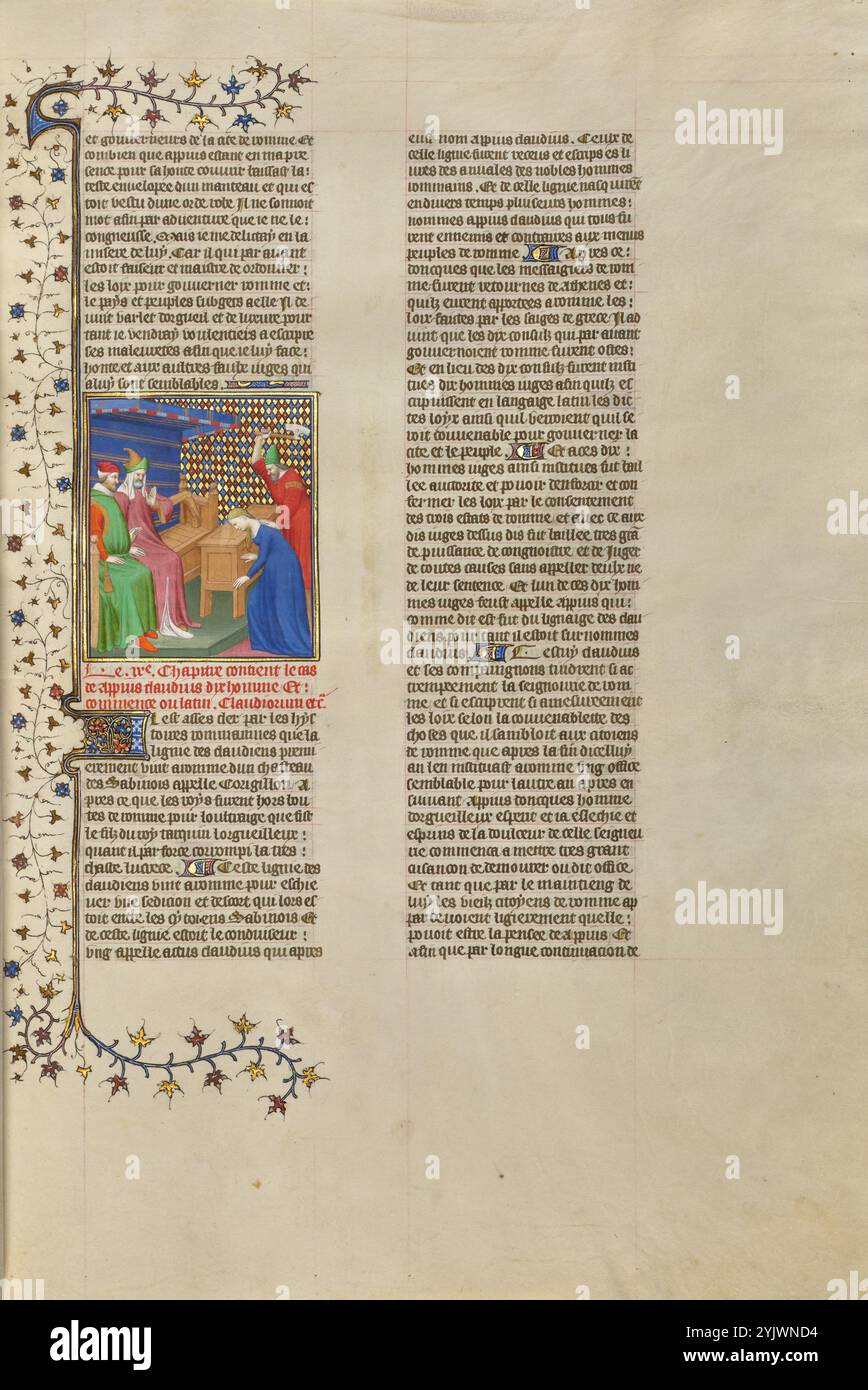 et gouverneurs de la cite de romme Et
combien que appius estant en ma pre
sence pour sa honte couvrir baissast la
teste envelopee dun manteau et qui es
toit vestu dune orde robe Il ne sonnoit
mot afin par adventure que ie ne le
congneusse. Mais ie me delictay en la
misere de luy. Car il qui par avant
estoit faiseur et maistre de ordonner
les loix pour gouverner romme et
le pays et peuples subgets a elle Il de
vint varlet dorgueil et de luxure pour
tant ie vendray voulentiers a escripre
ses maleuretes afin que ie luy face
honte et aux aultres faulx iuges qui
a luy sont semblables.
Le .xe. Chapitre contient le cas
de appius claudius dix homme Et
commence ou latin. Claudiorum etc.
Il est asses cler par les hys
toires rommainnes que la
ligne des claudiens premi
erement vint a romme dun chasteau
des Sabinois appelle Corigillon A
pres ce que les roys furent hors bou
tes de romme pour loultraige que fist
le filz du roy tarquin lorgueilleux
quant il par force corrompi la tres
chaste lucrece. Ceste ligne des
claudiens vint a romme pour eschie
ver une sedicion et descort qui lors es
toit entre les cytoiens Sabinois Et
de ceste ligne estoit le conduiseur
ung appelle actus claudius qui apres
eut nom appius claudius. Ceulx de
celle ligne furent receus et escrips es li
vres des annales des nobles hommes
rommains. Et de celle ligne nasquirent
en divers temps pluseurs hommes
nommes appius claudius qui tous fu
rent ennemis et contraires aux menus
peuples de romme Apres ce
doncques que les messaigiers de rom
me furent retournes de athenes et
quilz eurent apportees a romme les
loix faictes par les saiges de grece Il ad
vint que les dix consulz qui par avant
gouvernoient romme furent ostes
Et en lieu des dix consulz furent insti
tues dix hommes iuges afin quilz es
cripuissent en langaige latin les dic
tes loyx ainsi quil verroient quil se
roit couvenable pour gouverner la
cite et le peuple. Et a ces dix
hommes iuges ainsi institues fut bail
lee auctorite et povoir denforcir et con
fermer les loix par le consentement
des trois estats de romme et avec ce aux
dis iuges dessus dis fut baillee tres gra
de puissance de congnoistre et de Juger
de toutes causes sans appeller deulx ne
de leur sentence Et lun de ces dix hom
mes iuges feust appelle appius qui
comme dit est fut du lignaige des clau
diens pour tant il estoit surnommes
claudius. Cestuy claudius
et ses compaignons tindrent si ac
trempeement la seignourie de rom
me et si escriprent si amesureement
les loix selon la couvenablete des
choses que il sambloit aux citoyens
de romme que apres la fin dicelluy
an len instituast a romme ung office
semblable pour lautre an apres en
suivant Appius doncques homme
dorgueilleux esperit et ia eslechie et
esprins de la doulceur de celle seigneu
rie commenca a mettre tres grant
cusancon de demourer ou dit office
Et tant que par le maintieng de
luy les vieilz citoyens de romme ap
parcevoient ligierement quelle
povoit estre la pensee de appius Et
afin que par longue continuacion de
alamy
Image ID: 2YJWND4
www.alamy.com